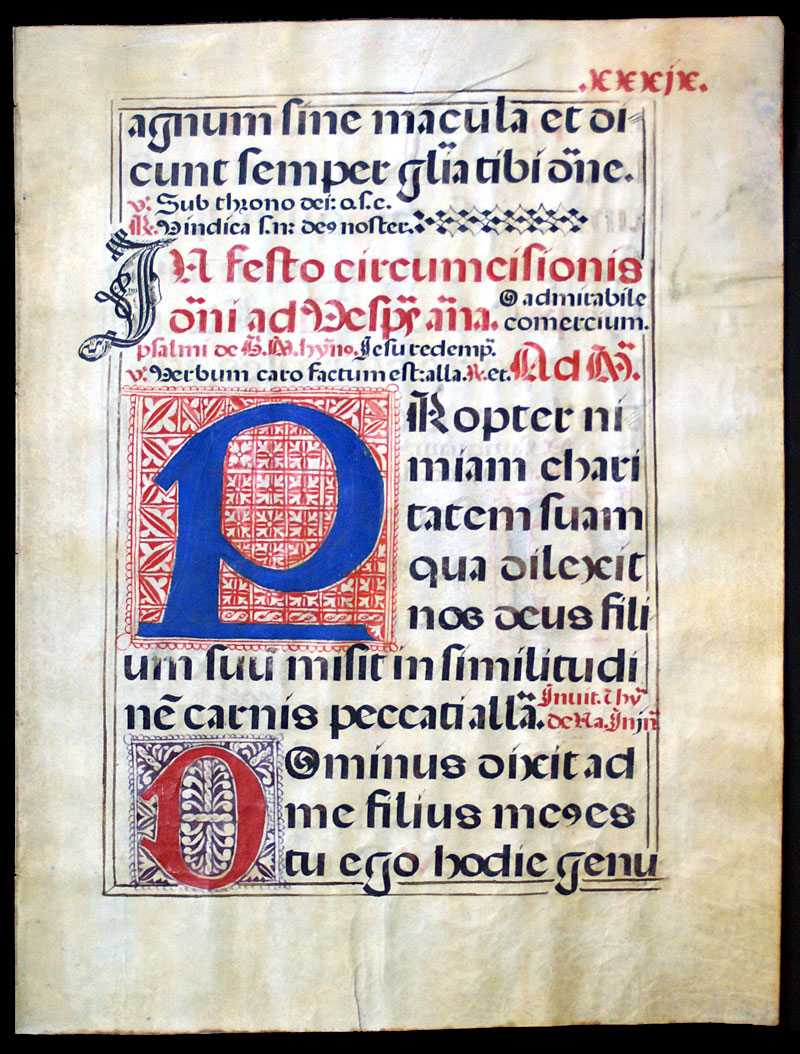 .xxxix.
agnum sine maculā et di
cunt semper gl̄ia tibi dn̄e.
v. Sub throno dei: o.s.c.
R. Vindica s.n: de9 noster.
IN festo circumcisionis
dn̄i ad Vesp̄ ān̄a. O admirabile
comercium.
psalmi de B. M. hȳno. Iesu redemp̄.
v. Verbum caro factum est: alla. R. et. Ad M̄.
PRopter ni
miam chari
tatem suam
qua dilexit
nos deus fili
um suū misit in similitudi
nē carnis peccati allā. Inuit. t hȳ
de Na. In j n̄
DOminus dixit ad
me filius me9 es
tu ego hodie genu